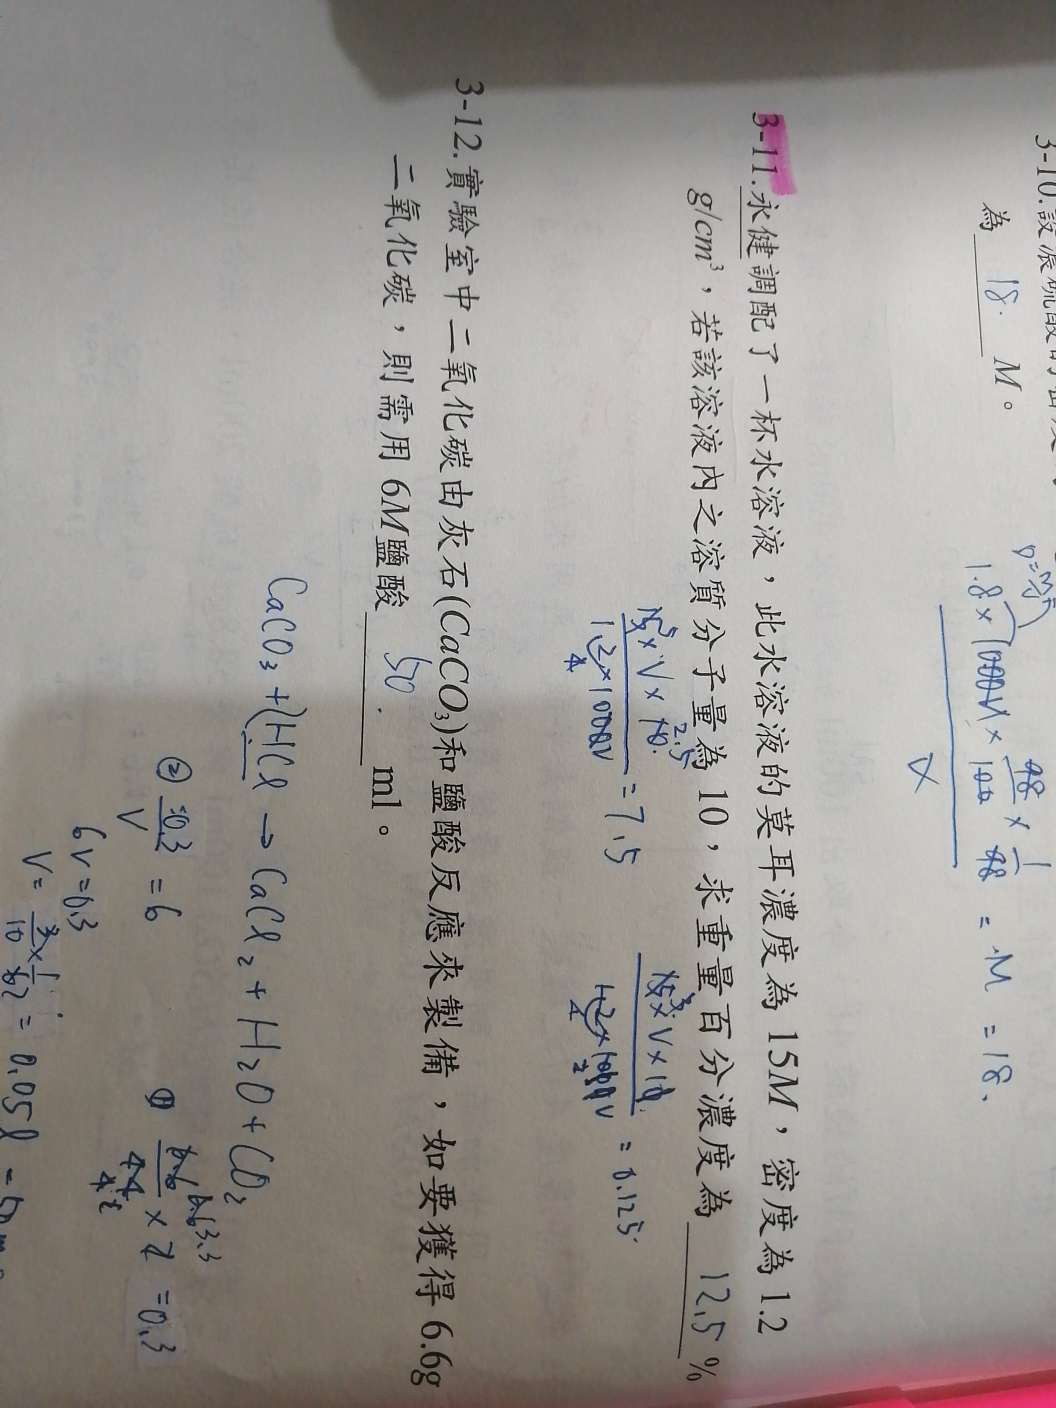 3-10.設濃硫酸的密度
為 18. M。
1.8 × 1000V × 98/100 × 1/98
V
= M = 18.
3-11.永健調配了一杯水溶液，此水溶液的莫耳濃度為 15M，密度為 1.2
g/cm³，若該溶液內之溶質分子量為 10，求重量百分濃度為 12.5 %
15 × V × 10.
1.2 × 1000V
= 7.5
15 × V × 10.
1.2 × 1000V
= 0.125.
3-12.實驗室中二氧化碳由灰石(CaCO₃)和鹽酸反應來製備，如要獲得 6.6g
二氧化碳，則需用 6M鹽酸 50. ml。
CaCO₃ + HCl → CaCl₂ + H₂O + CO₂
① 6.6/44 × 2 = 0.3
② 0.3/V = 6
6V = 0.3
V = 3/10 × 1/6 = 0.05l